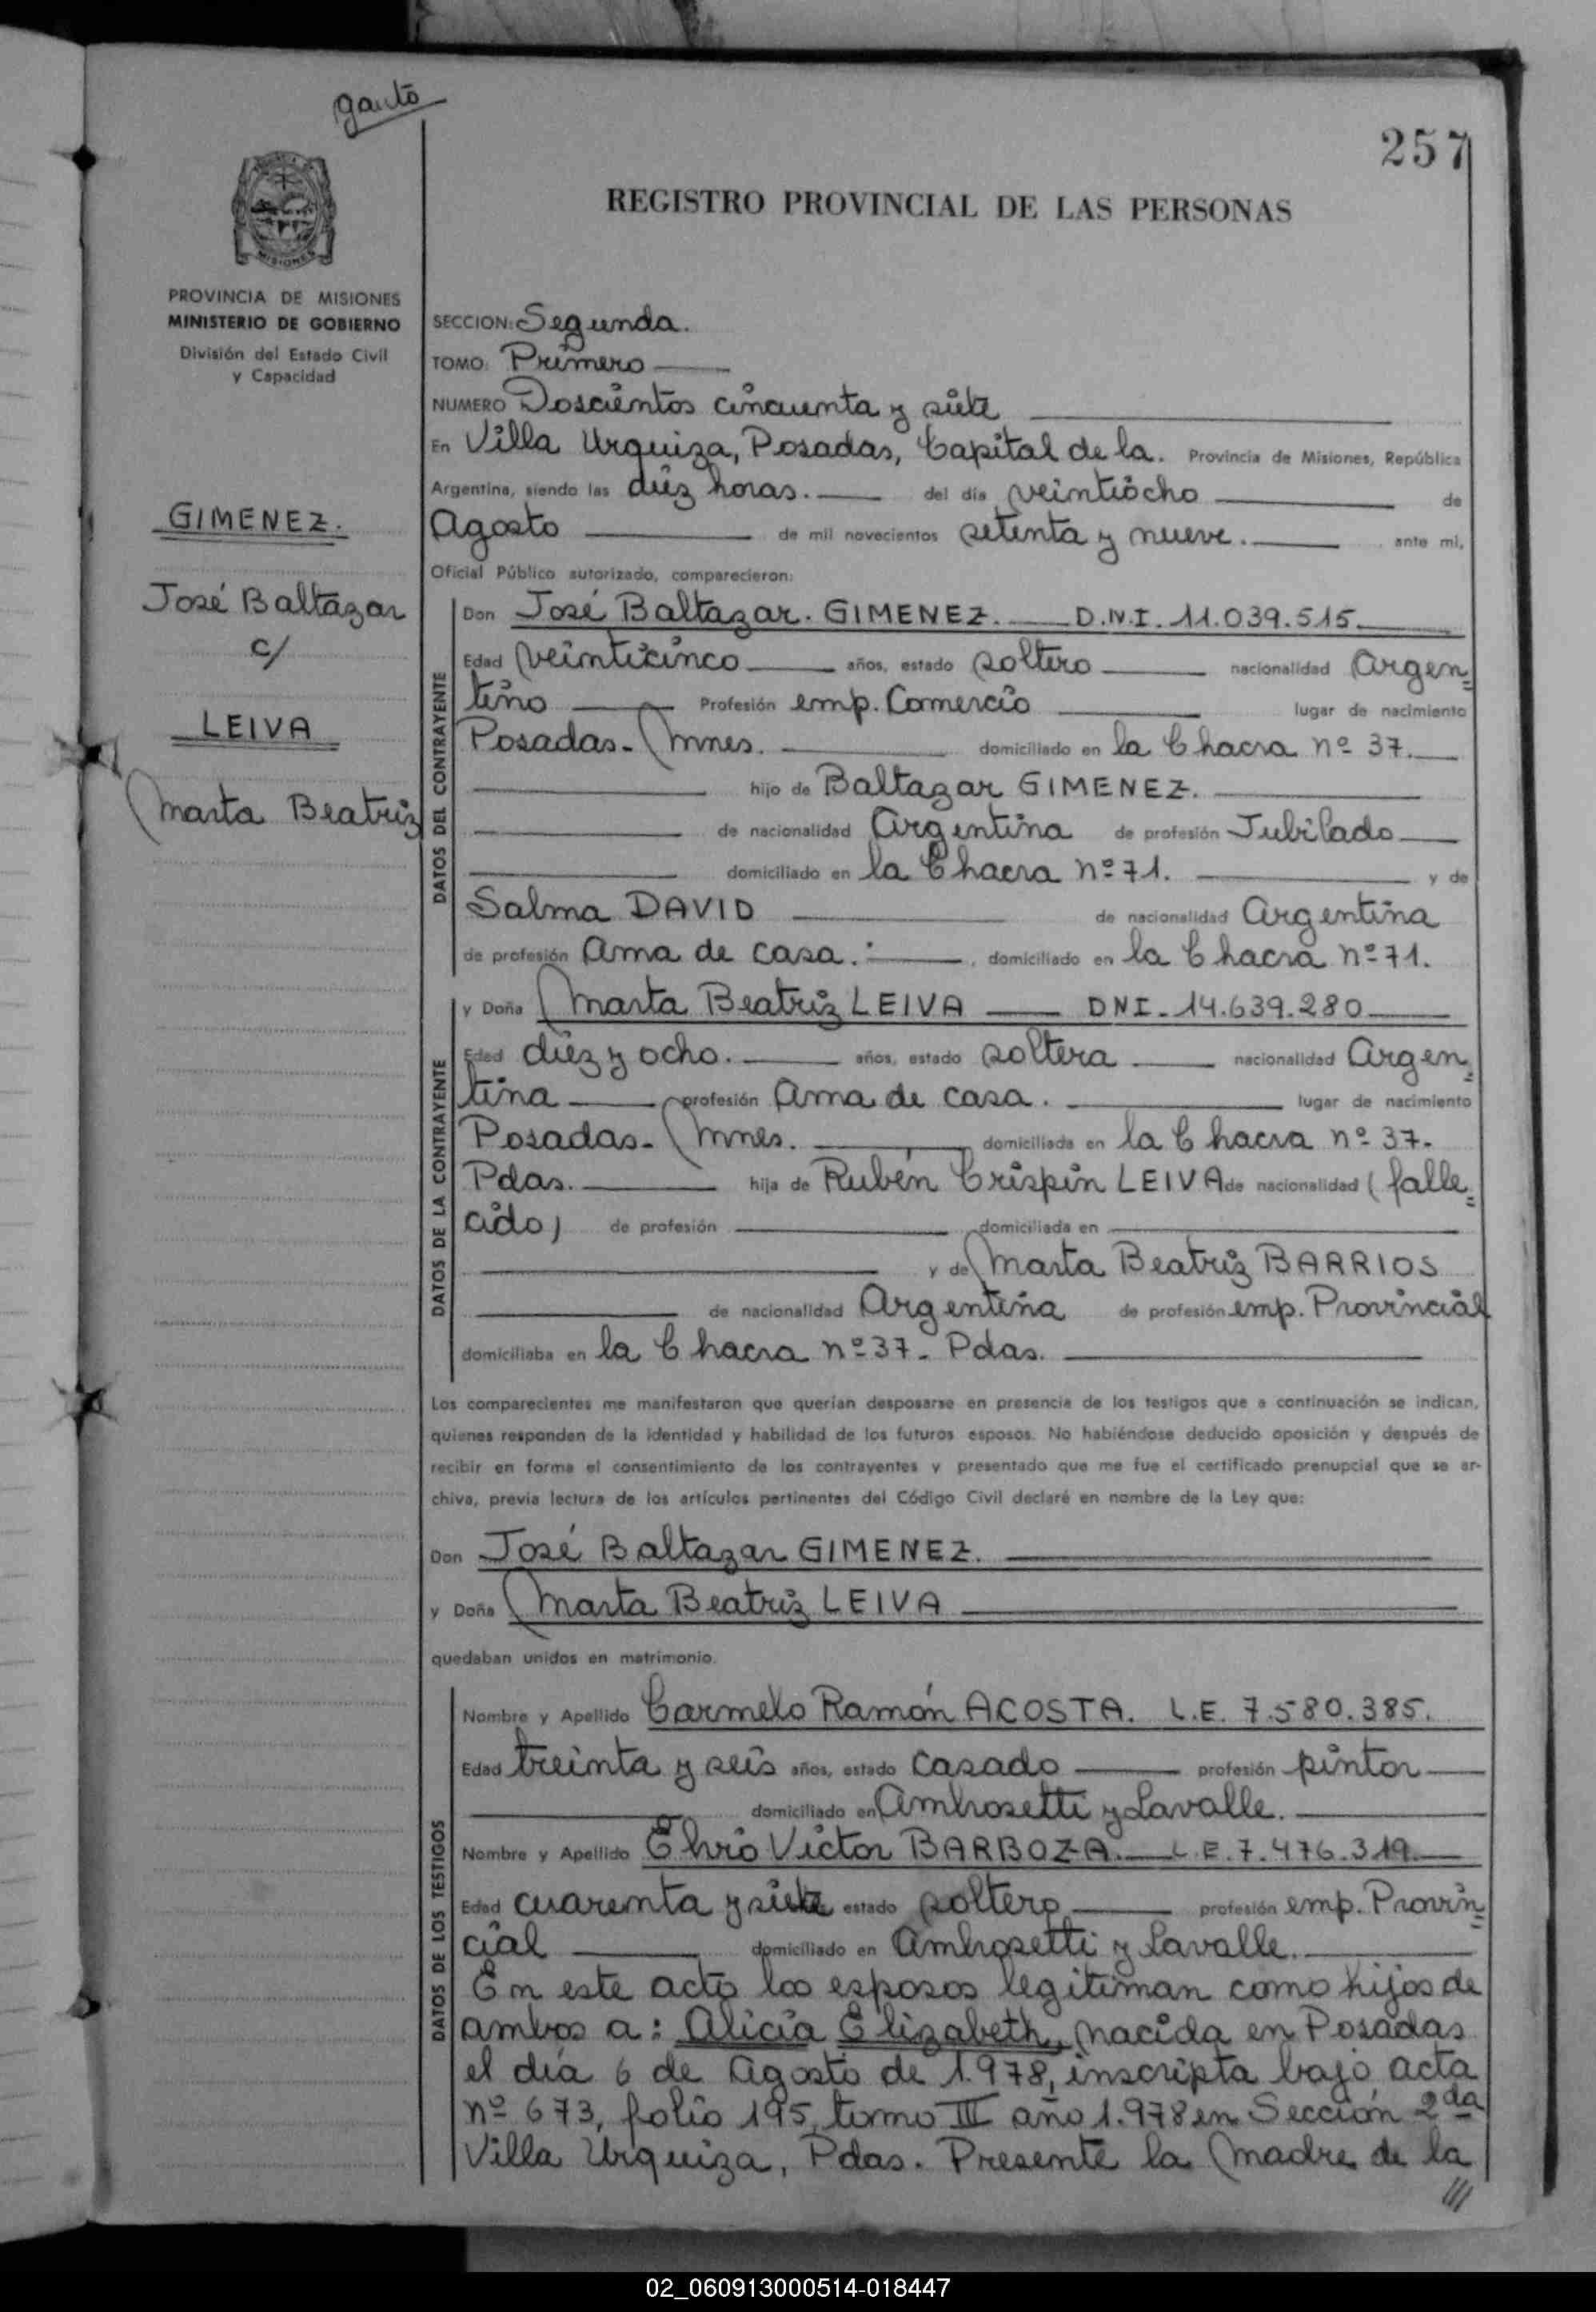 Gauto
257
REGISTRO PROVINCIAL DE LAS PERSONAS
MISIONES
PROVINCIA DE MISIONES
MINISTERIO DE GOBIERNO
División del Estado Civil
y Capacidad
GIMENEZ.
José Baltazar
c/
LEIVA
Marta Beatriz
SECCION: Segunda.
TOMO: Primero
NUMERO Doscientos cincuenta y siete
En Villa Urquiza, Posadas, Capital de la. Provincia de Misiones, República
Argentina, siendo las diez horas. del día veintiocho de
Agosto de mil novecientos setenta y nueve. ante mi,
Oficial Público autorizado, comparecieron:
DATOS DEL CONTRAYENTE
Don José Baltazar. GIMENEZ. D.N.I. 11.039.515.
Edad veinticinco años, estado soltero nacionalidad Argen=
tino Profesión emp. Comercio lugar de nacimiento
Posadas- Mnes. domiciliado en la Chacra nº 37.
hijo de Baltazar GIMENEZ.
de nacionalidad Argentina de profesión Jubilado
domiciliado en la Chacra nº 71. y de
Salma DAVID de nacionalidad Argentina
de profesión Ama de casa.- domiciliado en la Chacra nº 71.
DATOS DE LA CONTRAYENTE
y Doña Marta Beatriz LEIVA DNI-14.639.280
Edad diez y ocho. años, estado soltera nacionalidad Argen=
tina profesión Ama de casa. lugar de nacimiento
Posadas- Mnes. domiciliada en la Chacra nº 37.
Pdas. hija de Rubén Crispín LEIVA de nacionalidad (falle=
cido) de profesión domiciliada en
y de Marta Beatriz BARRIOS
de nacionalidad Argentina de profesión emp. Provincial
domiciliaba en la Chacra nº 37- Pdas.
Los comparecientes me manifestaron que querían desposarse en presencia de los testigos que a continuación se indican,
quienes responden de la identidad y habilidad de los futuros esposos. No habiéndose deducido oposición y después de
recibir en forma el consentimiento de los contrayentes y presentado que me fue el certificado prenupcial que se ar-
chiva, previa lectura de los artículos pertinentes del Código Civil declaré en nombre de la Ley que:
Don José Baltazar GIMENEZ.
y Doña Marta Beatriz LEIVA
quedaban unidos en matrimonio.
DATOS DE LOS TESTIGOS
Nombre y Apellido Carmelo Ramón ACOSTA. L.E. 7.580.385.
Edad treinta y seis años, estado casado profesión pintor
domiciliado en Ambrosetti y Lavalle.
Nombre y Apellido Elvio Victor BARBOZA. L.E. 7.476.319.
Edad cuarenta y siete estado soltero profesión emp. Provin=
cial domiciliado en Ambrosetti y Lavalle.
En este acto los esposos legitiman como hijos de
ambos a: Alicia Elizabeth, nacida en Posadas
el día 6 de Agosto de 1.978, inscripta bajo acta
nº 673, folio 195, tomo III año 1.978 en Sección 2da
Villa Urquiza, Pdas. Presente la madre de la
///
02_060913000514-018447